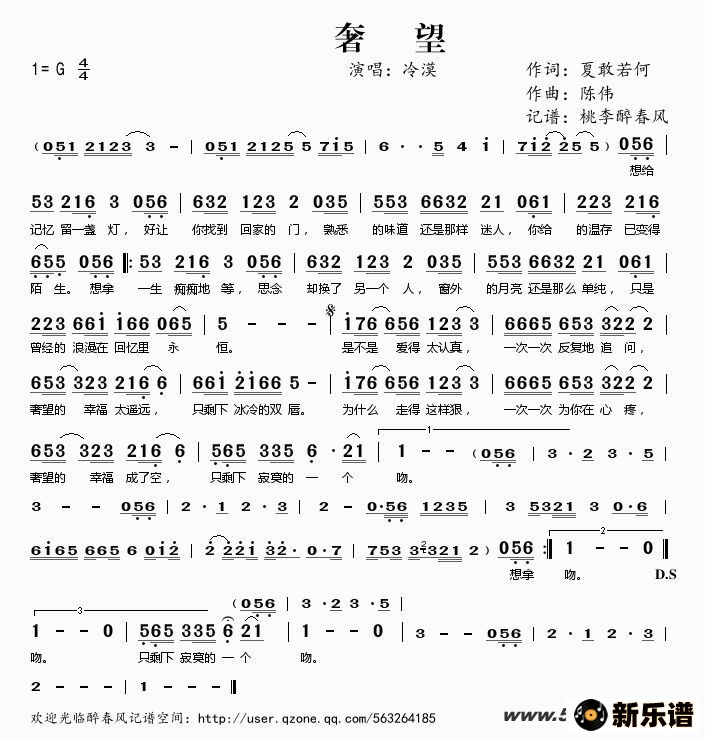 奢 望
1= G 4/4 演唱：冷漠 作词：夏敢若何
作曲：陈伟
记谱：桃李醉春风
（051 2123 3 - | 051 2125 5 715 | 6 · · 5 4 1 | 712 25 5 ） 056 |
想给
53 216 3 056 | 632 123 2 035 | 553 6632 21 061 | 223 216
记忆 留一盏 灯，好让 你找到 回家的 门，熟悉 的味道 还是那样 迷人，你给 的温存 已变得
655 056 |: 53 216 3 056 | 632 123 2 035 | 553 6632 21 061 |
陌 生。想拿 一生 痴痴地 等，思念 却换了 另一个 人，窗外 的月亮 还是那么 单纯，只是
223 661 166 065 | 5 - - - | 176 656 123 3 | 6665 653 322 2 |
曾经的 浪漫在 回忆里 永 恒。 是不是 爱得 太认真， 一次一次 反复地 追 问，
653 323 216 6 | 661 2166 5 - | 176 656 123 3 | 6665 653 322 2 |
奢望的 幸福 太遥远， 只剩下 冰冷的双 唇。 为什么 走得 这样狠， 一次一次 为你在 心 疼，
653 323 216 6 | 565 335 6 · 21 | 1 1 - - （056 | 3 · 3 · 5 |
奢望的 幸福 成了空， 只剩下 寂寞的 一 个 吻。
3 - - 056 | 2 · 1 2 · 3 | 2 - 0·56 1235 | 3 5321 3 0·6 |
6165 665 6 012 | 2 2221 32· 0·7 | 753 32321 2 ） 056 :| 2 1 - - 0 ‖
想拿 吻。 D.S
（056 | 3 · 2 3 · 5 |
3
1 - - 0 | 565 335 6 21 | 1 - - 0 | 3 - - 056 | 2 · 1 2 · 3 |
吻。 只剩下 寂寞的 一个 吻。
2 - - - | 1 - - - ‖
欢迎光临醉春风记谱空间：http://user.qzone.qq.com/563264185
www.5
新乐谱